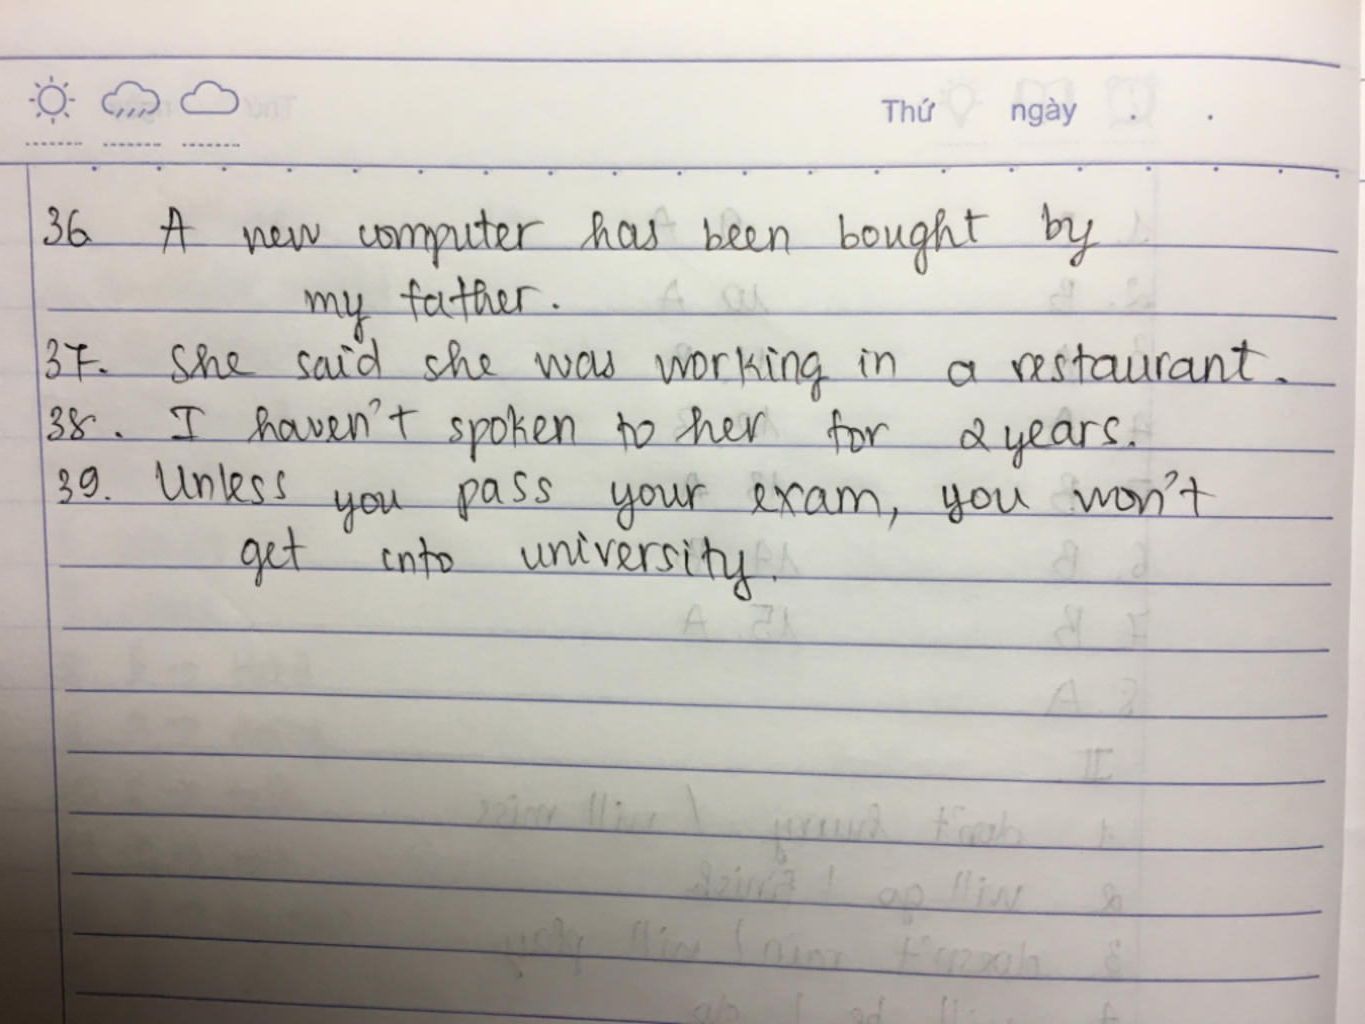 Thứ ngày . .
36 A new computer has been bought by
my father.
37. She said she was working in a restaurant.
38. I haven't spoken to her for 2 years.
39. Unless you pass your exam, you won't
get into university.